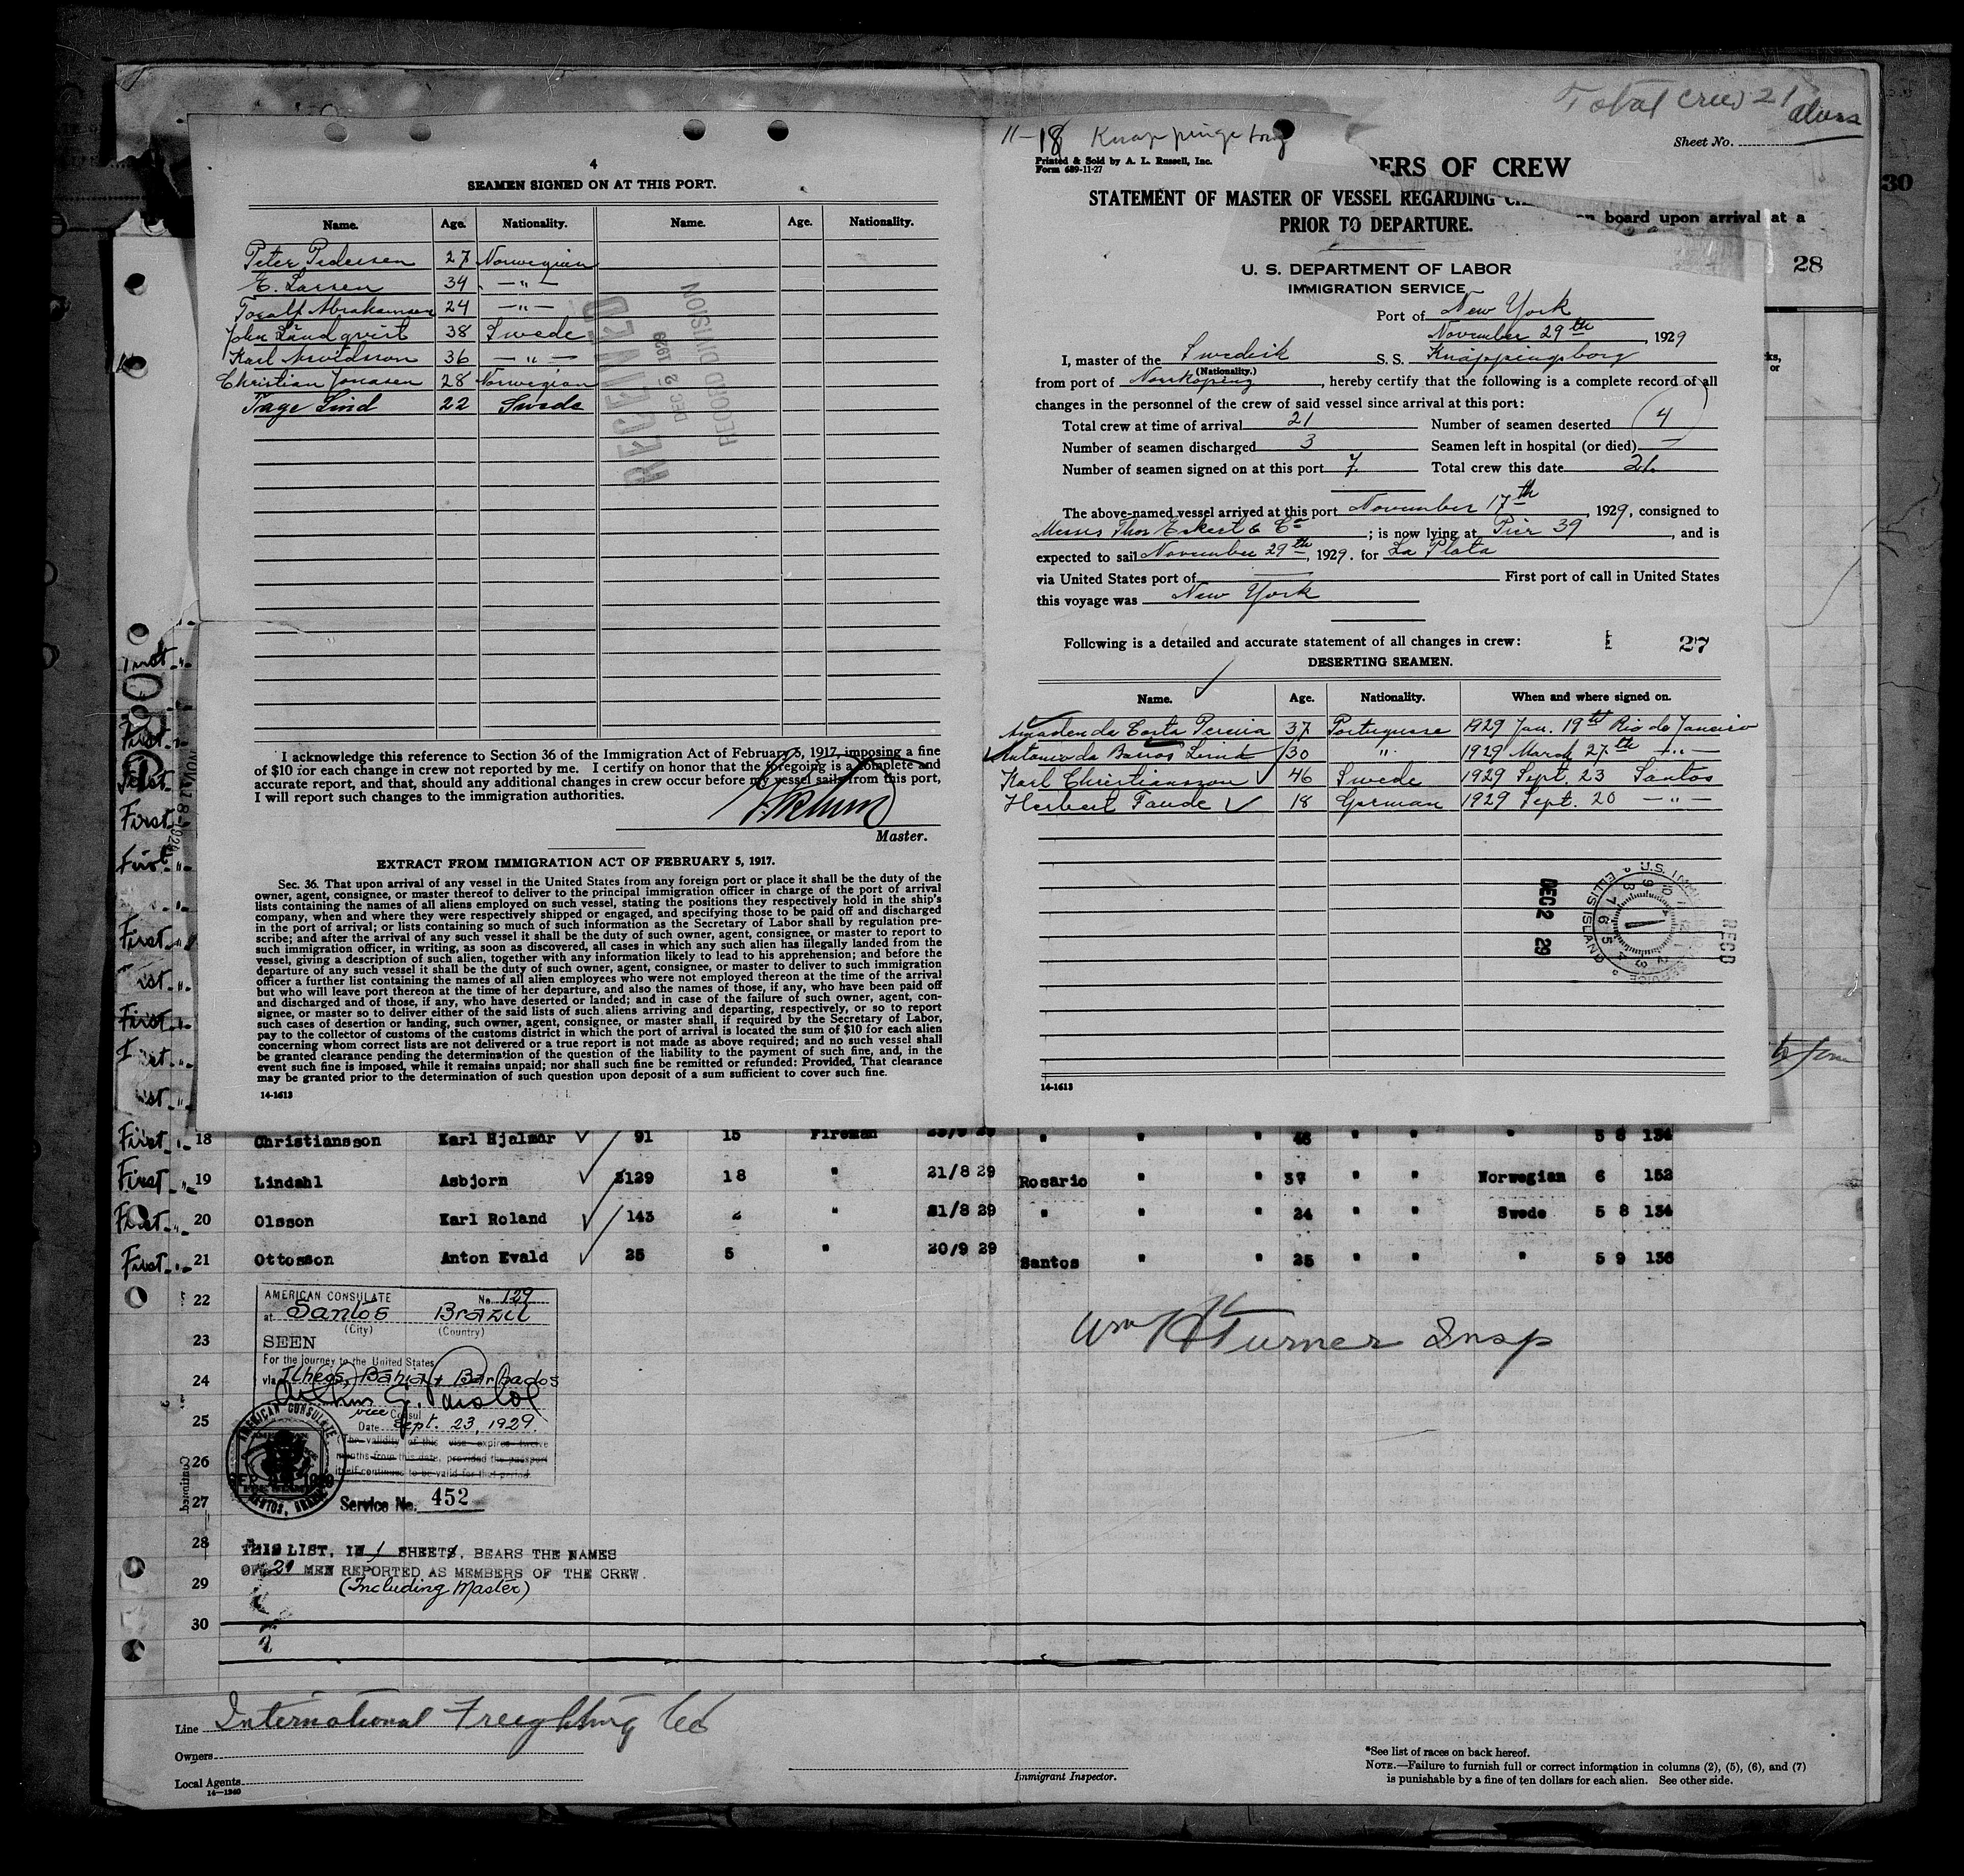 Total Crew 21
aliens
Sheet No.
11-18 Knappingsborg
Printed & Sold by A. L. Russell, Inc.
Form 689-11-27
BERS OF CREW
STATEMENT OF MASTER OF VESSEL REGARDING
PRIOR TO DEPARTURE.
on board upon arrival at a
30
28
U. S. DEPARTMENT OF LABOR
IMMIGRATION SERVICE
Port of New York
November 29th, 1929
I, master of the Swedish S. S. Knäppingsborg
(Nationality.)
from port of Norrköping, hereby certify that the following is a complete record of all
changes in the personnel of the crew of said vessel since arrival at this port:
Total crew at time of arrival 21 Number of seamen deserted 4
Number of seamen discharged 3 Seamen left in hospital (or died) —
Number of seamen signed on at this port 7 Total crew this date 21.
The above-named vessel arrived at this port November 17th, 1929, consigned to
Messrs Thor Eckert & Co; is now lying at Pier 39, and is
expected to sail November 29th, 1929. for La Plata
via United States port of — First port of call in United States
this voyage was New York
Following is a detailed and accurate statement of all changes in crew:
27
DESERTING SEAMEN.
Name. Age. Nationality. When and where signed on.
da Costa Pereira 37 Portuguese 1929 Jan. 19th Rio de Janeiro
Antonio da Barros 30 " 1929 March 27th —"—
Karl Christiansson 46 Swede 1929 Sept. 23 Santos
Herbert Taude 18 German 1929 Sept. 20 —"—
U.S. IMMIGRATION SERVICE
ELLIS ISLAND
DEC 2 29
REC'D
14-1613
4
SEAMEN SIGNED ON AT THIS PORT.
Name. Age. Nationality. Name. Age. Nationality.
Peter Pedersen 27 Norwegian
E. Larsen 34 —"—
Toralf Abrahamsen 24 —"—
John Lundqvist 38 Swede
Karl Arvidsson 36 —"—
Christian Jonasen 28 Norwegian
Trage Lind 22 Swede
RECEIVED
DEC 2 1929
RECORD DIVISION
I acknowledge this reference to Section 36 of the Immigration Act of February 5, 1917, imposing a fine
of $10 for each change in crew not reported by me. I certify on honor that the foregoing is a complete and
accurate report, and that, should any additional changes in crew occur before my vessel sails from this port,
I will report such changes to the immigration authorities.
Master.
EXTRACT FROM IMMIGRATION ACT OF FEBRUARY 5, 1917.
Sec. 36. That upon arrival of any vessel in the United States from any foreign port or place it shall be the duty of the
owner, agent, consignee, or master thereof to deliver to the principal immigration officer in charge of the port of arrival
lists containing the names of all aliens employed on such vessel, stating the positions they respectively hold in the ship's
company, when and where they were respectively shipped or engaged, and specifying those to be paid off and discharged
in the port of arrival; or lists containing so much of such information as the Secretary of Labor shall by regulation pre-
scribe; and after the arrival of any such vessel it shall be the duty of such owner, agent, consignee, or master to report to
such immigration officer, in writing, as soon as discovered, all cases in which any such alien has illegally landed from the
vessel, giving a description of such alien, together with any information likely to lead to his apprehension; and before the
departure of any such vessel it shall be the duty of such owner, agent, consignee, or master to deliver to such immigration
officer a further list containing the names of all alien employees who were not employed thereon at the time of the arrival
but who will leave port thereon at the time of her departure, and also the names of those, if any, who have been paid off
and discharged and of those, if any, who have deserted or landed; and in case of the failure of such owner, agent, con-
signee, or master so to deliver either of the said lists of such aliens arriving and departing, respectively, or so to report
such cases of desertion or landing, such owner, agent, consignee, or master shall, if required by the Secretary of Labor,
pay to the collector of customs of the customs district in which the port of arrival is located the sum of $10 for each alien
concerning whom correct lists are not delivered or a true report is not made as above required; and no such vessel shall
be granted clearance pending the determination of the question of the liability to the payment of such fine, and, in the
event such fine is imposed, while it remains unpaid; nor shall such fine be remitted or refunded: Provided, That clearance
may be granted prior to the determination of such question upon deposit of a sum sufficient to cover such fine.
14-1613
First " 18 Christiansson Karl Hjalmar 91 15 Fireman 23/9 29 " " " 46 " " " 5 8 134
First " 19 Lindahl Asbjorn 2129 18 " 21/8 29 Rosario " " 37 " " Norwegian 6 152
First " 20 Olsson Karl Roland 143 " 21/8 29 " " " 24 " " Swede 5 8 134
First " 21 Ottosson Anton Evald 25 5 " 20/9 29 Santos " " 25 " " " 5 9 136
22
23
24
25
26
27
28
29
30
AMERICAN CONSULATE No. 129
at Santos Brazil
(City) (Country)
SEEN
For the journey to the United States
via Ilheos, Bahia & Barbados
vice Consul
Date Sept. 23, 1929.
(The validity of this visa expires twelve
months from this date, provided the passport
itself continues to be valid for that period.
AMERICAN CONSULATE
SANTOS, BRAZIL
Service No. 452
Continued
THIS LIST, IN 1 SHEETS, BEARS THE NAMES
OF 21 MEN REPORTED AS MEMBERS OF THE CREW.
(Including Master)
Wm H Turner Insp
Line International Freighting Co
Owners
Local Agents
14—1240
Immigrant Inspector.
*See list of races on back hereof.
NOTE.—Failure to furnish full or correct information in columns (2), (5), (6), and (7)
is punishable by a fine of ten dollars for each alien. See other side.